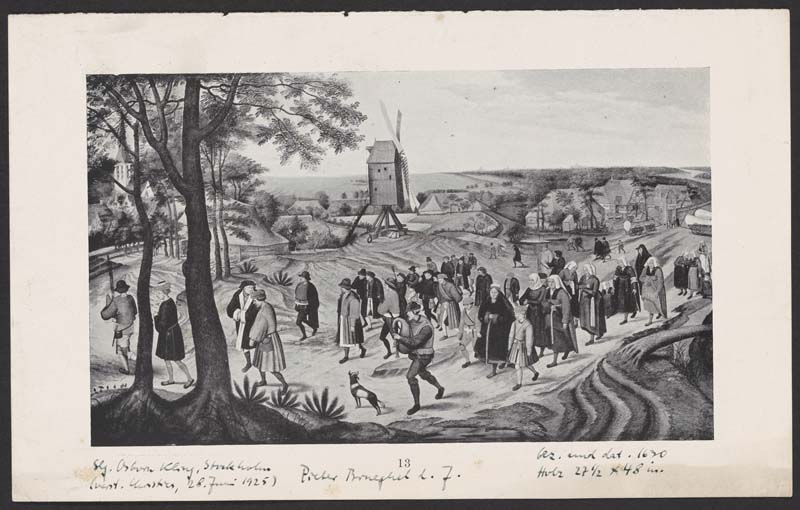 Slg. Oskar Kling, Stockholm
(verst. Christies, 26. Juni 1925)
13
Pieter Brueghel d. J.
bez. und dat. 1630
Holz 27 1/2 x 48 in.